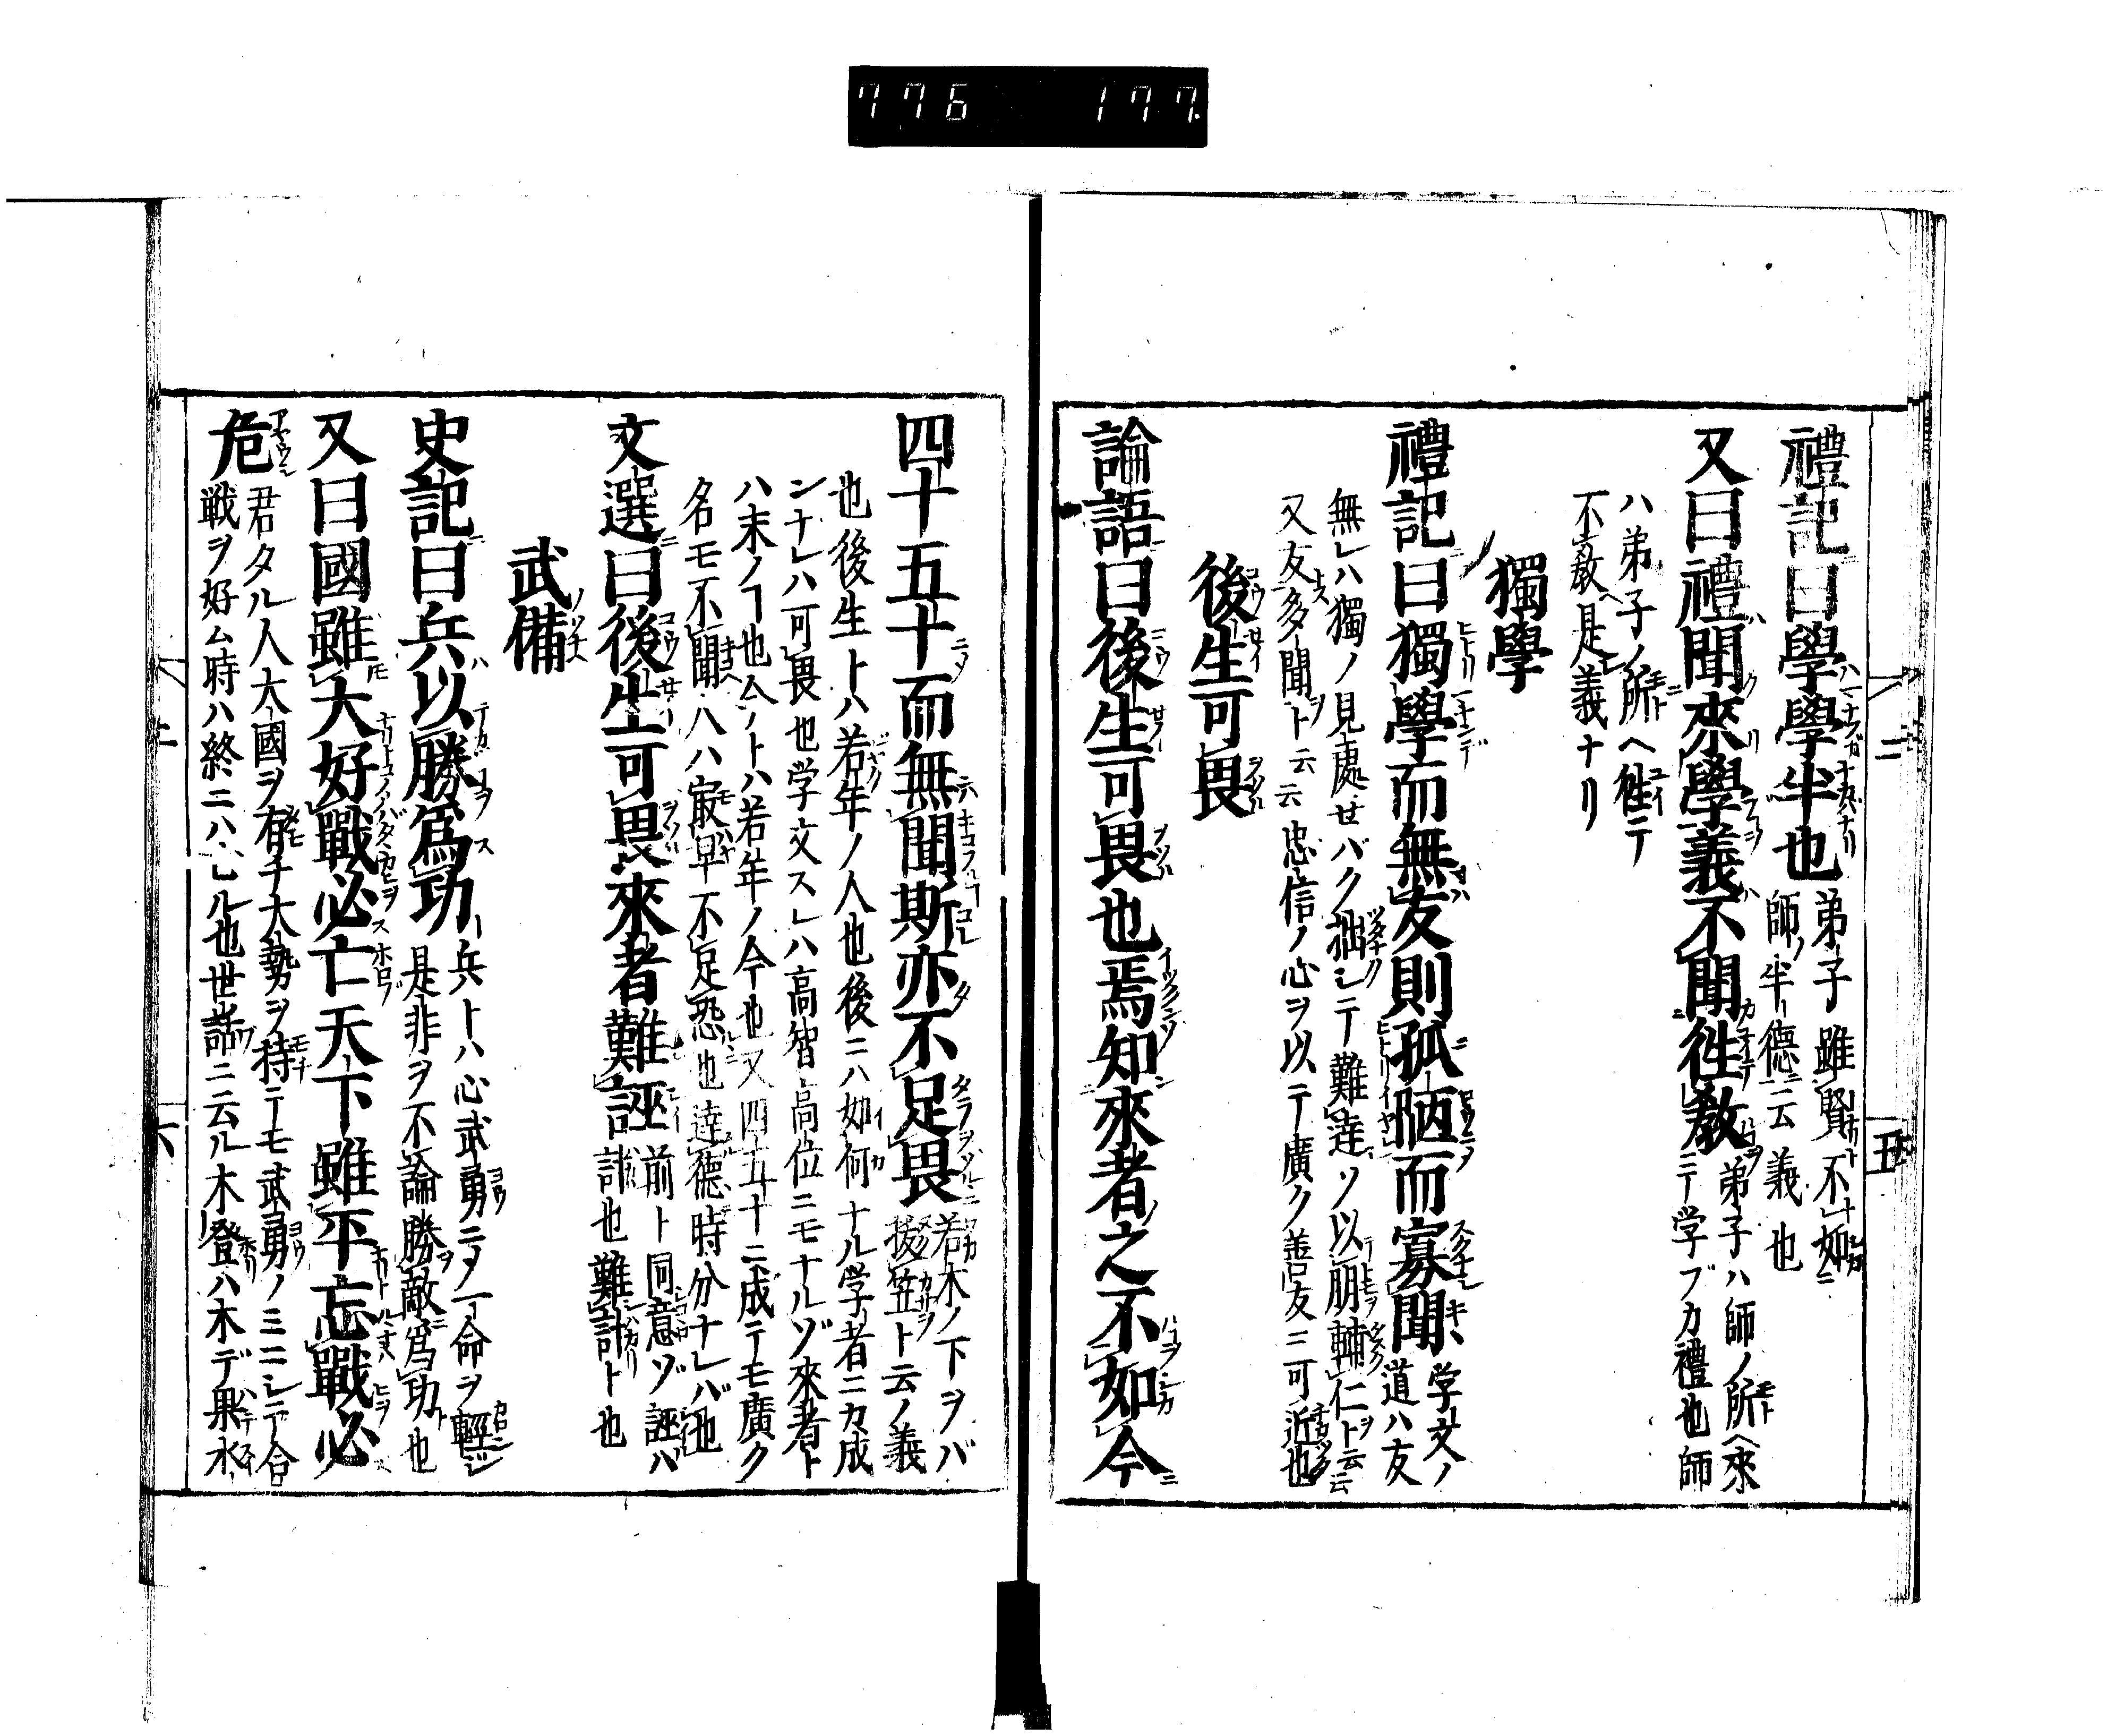 776 177.
禮記曰學學半也
弟子雖賢不如
師ノ半德ニ云義也
又曰禮聞來學義不聞往教
弟子ハ師ノ所ヘ來
ニテ学ブカ禮也師
ハ弟子ノ所ヘ往テ
不教是義ナリ
獨學
禮記曰獨學而無友則孤陋而寡聞
学文ノ
道ハ友
無レハ獨ノ見處せバク拙シテ難達ソ以朋輔仁ト云云
又友多聞ト云云忠信ノ心ヲ以テ廣ク善友ニ可近也
後生可畏
論語曰後生可畏也焉知來者之不如今
四十五十而無聞斯亦不足畏
若木ノ下ヲバ
掇笠ト云ノ義
也後生トハ若年ノ人也後ニハ如何ナル学者ニカ成
ンナレハ可畏也学文スレハ高智高位ニモナルゾ來者ト
ハ末ノヿ也今ノトハ若年ノ今也又四五十ニ成テモ廣ク
名モ不聞人ハ最早不足恐也達德時分ナレバ也
文選曰後生可畏來者難誣
前ト同意ゾ誣ハ
計也難計ト也
武備
史記曰兵以勝爲功
兵トハ心武勇ニメ一命ヲ輕シ
是非ヲ不論勝敵爲功也
又曰國雖大好戰必亡天下雖平忘戰必
危
君タル人大國ヲ有チ大勢ヲ持テモ武勇ノミニシテ合
戦ヲ好ム時ハ終ニハ亡ル也世話ニ云ル木登ハ木デ果水
二
五
六